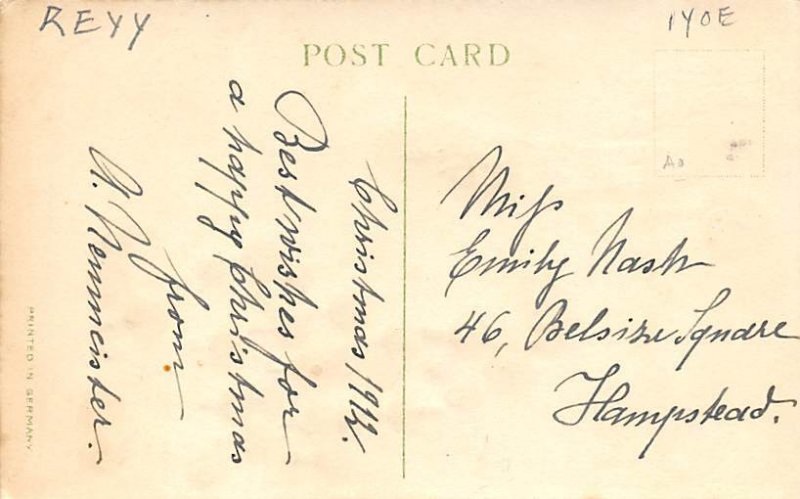 REYY
1YOE
POST CARD
Ao
Christmas 1912.
Best wishes for
a happy Christmas
from
A. Nemmeister.
Miss
Emily Nash
46, Belsize Square
Hampstead.
PRINTED IN GERMANY